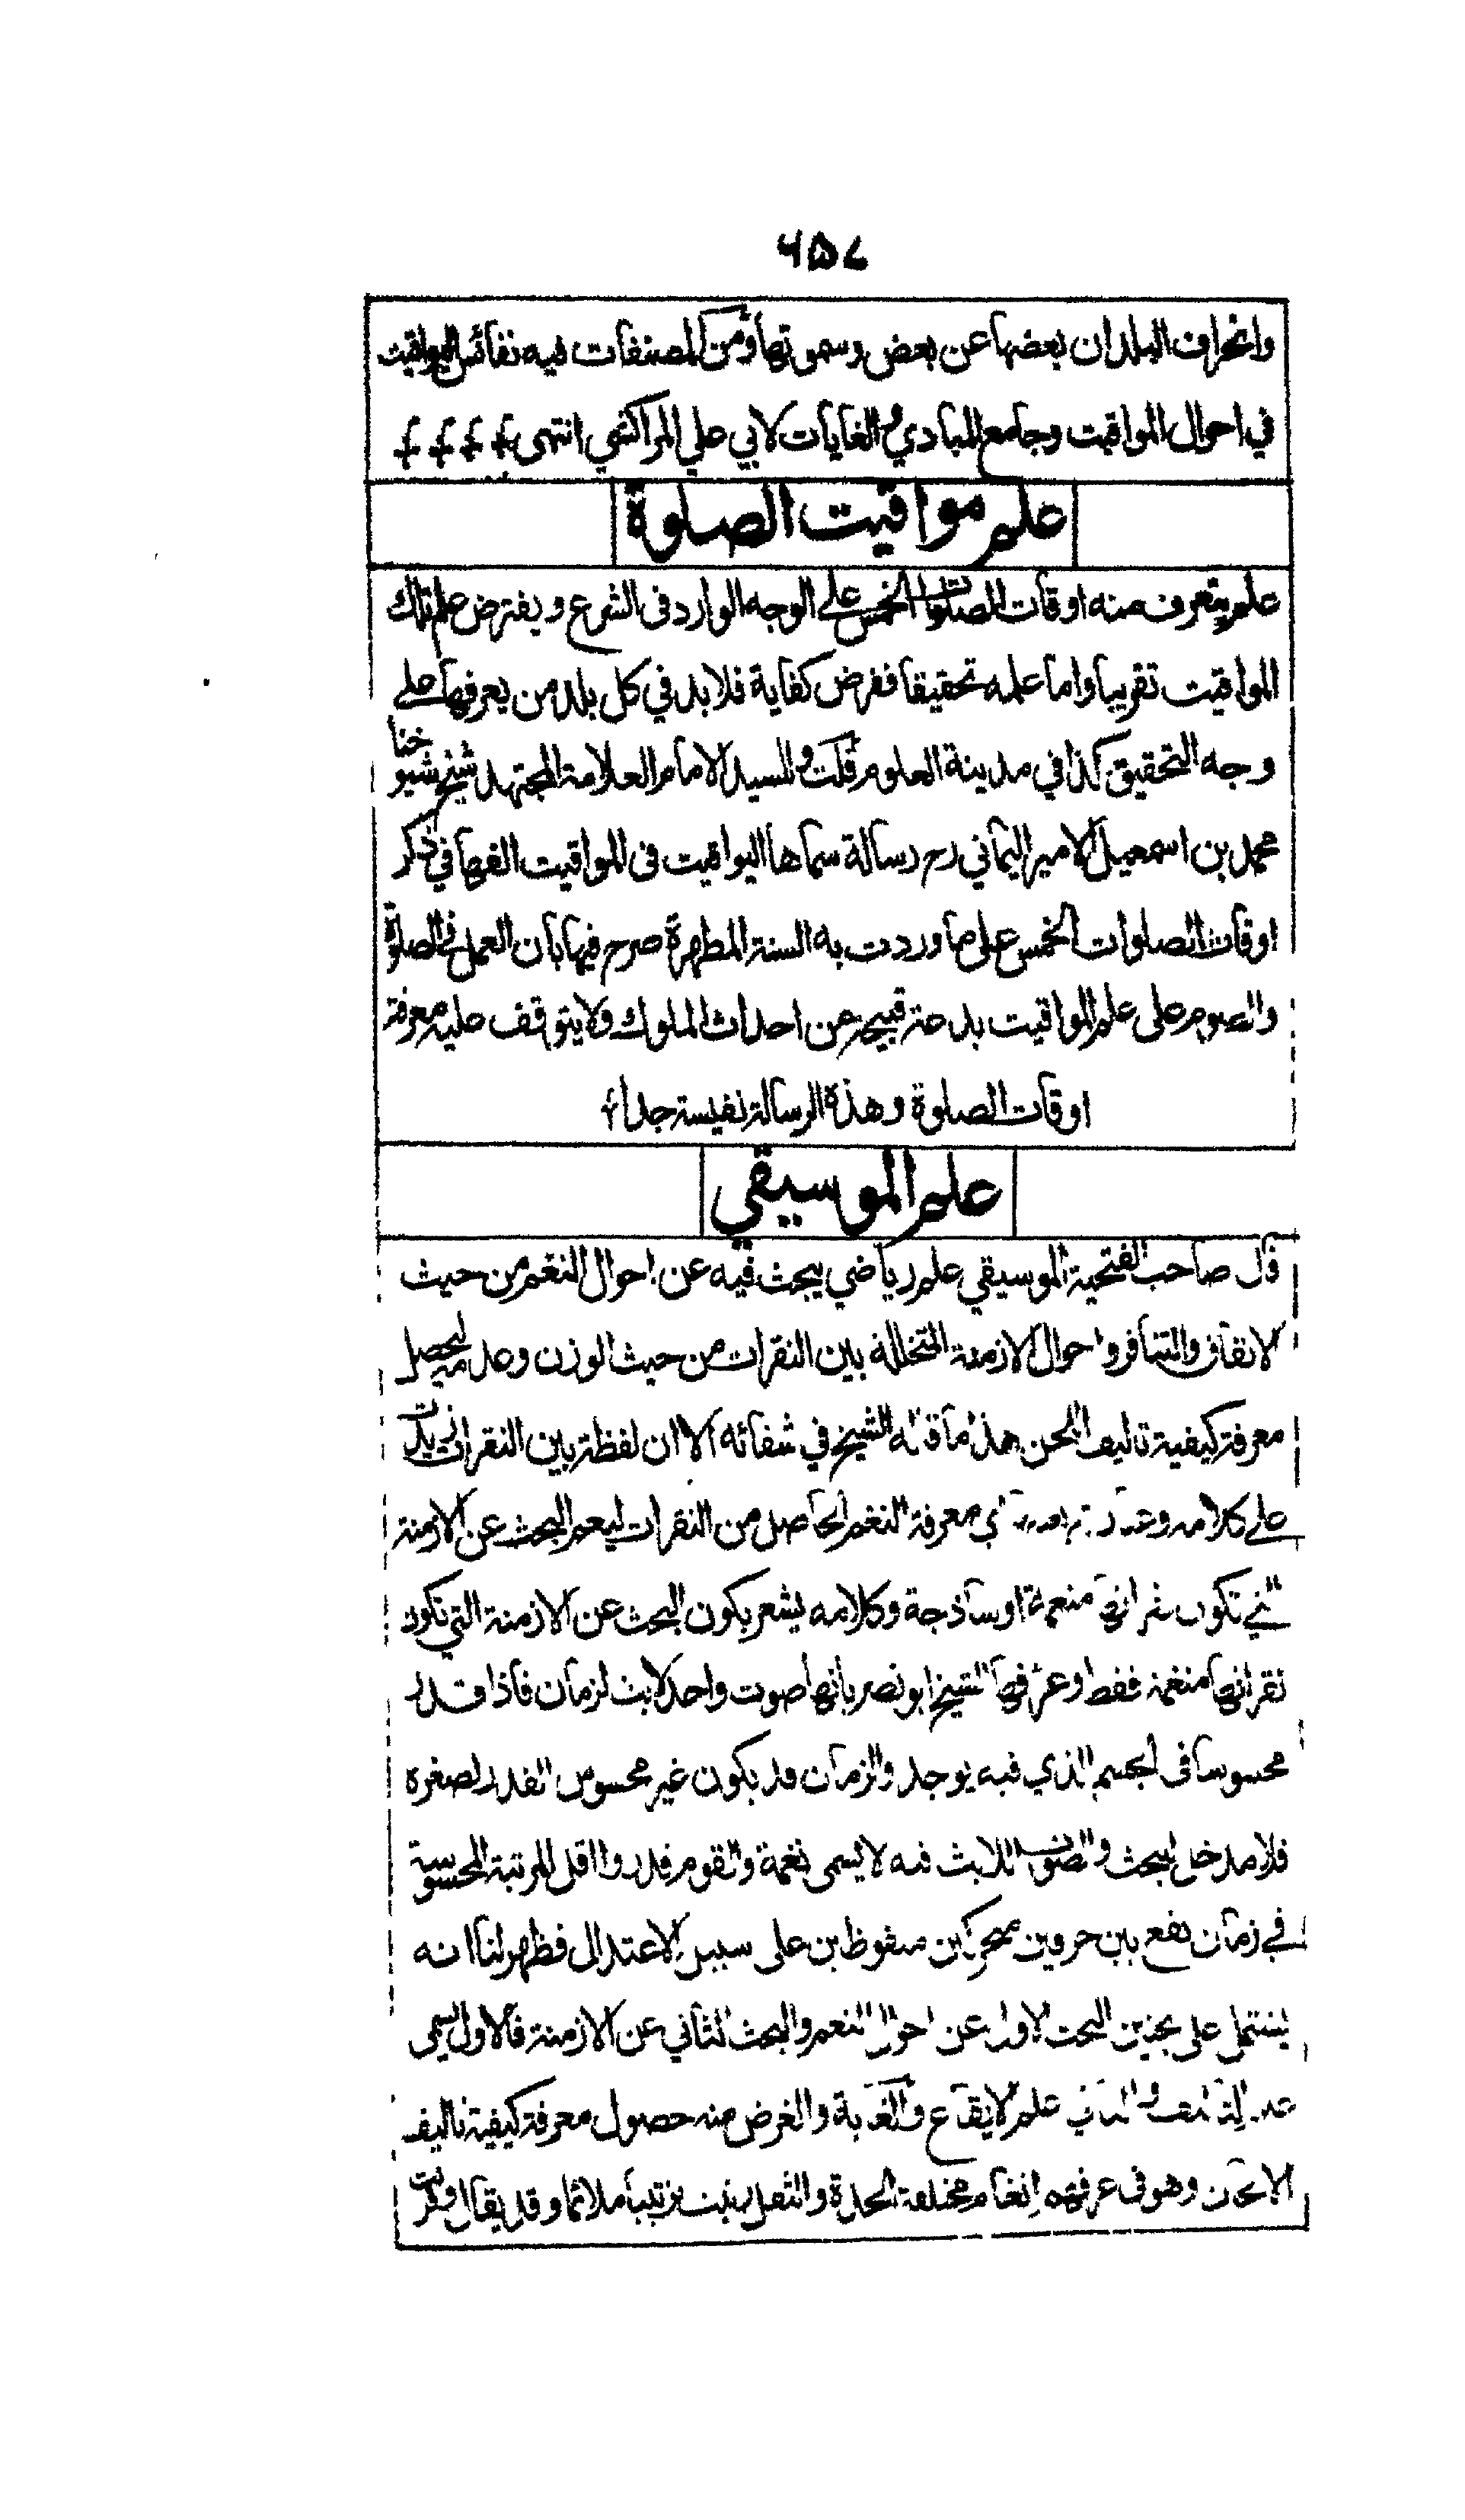 ٦٥٧
وانحراف البلدان بعضها عن بعض وسموتها ومن المصنفات فيه نفائس اليواقيت
في احوال المواقيت وجامع المبادي والغايات لابي علي المراكشي انتهى
علم مواقيت الصلوة
علم يتعرف منه اوقات الصلوات الخمس على الوجه الوارد في الشرع ويفترض علم تلك
المواقيت تقريبا واما علمه تحقيقا ففرض كفاية فلا بد في كل بلد من يعرفها على
وجه التحقيق كذا في مدينة العلوم قلت وللسيد الامام العلامة المجتهد شيخ شيوخنا
محمد بن اسمعيل الامير اليماني رح رسالة سماها اليواقيت في المواقيت الفها في ذكر
اوقات الصلوات الخمس على ما وردت به السنة المطهرة صرح فيها بان العمل في الصلوة
والصوم على علم المواقيت بدعة قبيحة عن احداث الملوك ولا يتوقف عليه معرفة
اوقات الصلوة وهذه الرسالة نفيسة جدا
علم الموسيقي
قال صاحب الفتحية الموسيقي علم رياضي يبحث فيه عن احوال النغم من حيث
الاتفاق والتنافر واحوال الازمنة المتخللة بين النقرات من حيث الوزن وعدمه ليحصل
معرفة كيفية تاليف اللحن هذا ما قاله الشيخ في شفائه الا ان لفظة بين النقرات زيدت
على كلامه معرفة النغم الحاصل من النقرات ليعم البحث عن الازمنة
التي تكون نقراتها منغمة او ساذجة وكلامه يشعر بكون البحث عن الازمنة التي تكون
نقراتها منغمة فقط وعرفها الشيخ ابو نصر بانها صوت واحد لابث لزمان فاذا قدر
محسوسا في الجسم الذي فيه يوجد والزمان قد يكون غير محسوس القدر لصغره
فلا مدخل للبحث والصوت اللابث فيه لا يسمى نغمة والقوم قدروا اقل المرتبة المحسوسة
في زمان يقع بين حرفين متحركين ملفوظين على سبيل الاعتدال فظهر لنا انه
يشتمل على بحثين البحث الاول عن احوال النغم والبحث الثاني عن الازمنة فالاول يسمى
علم التاليف والثاني علم الايقاع والغاية والغرض منه حصول معرفة كيفية تاليف
الالحان وهو في عرفهم انغام مختلفة الحدة والثقل رتبت ترتيبا ملائما وقد يقال وقرنت